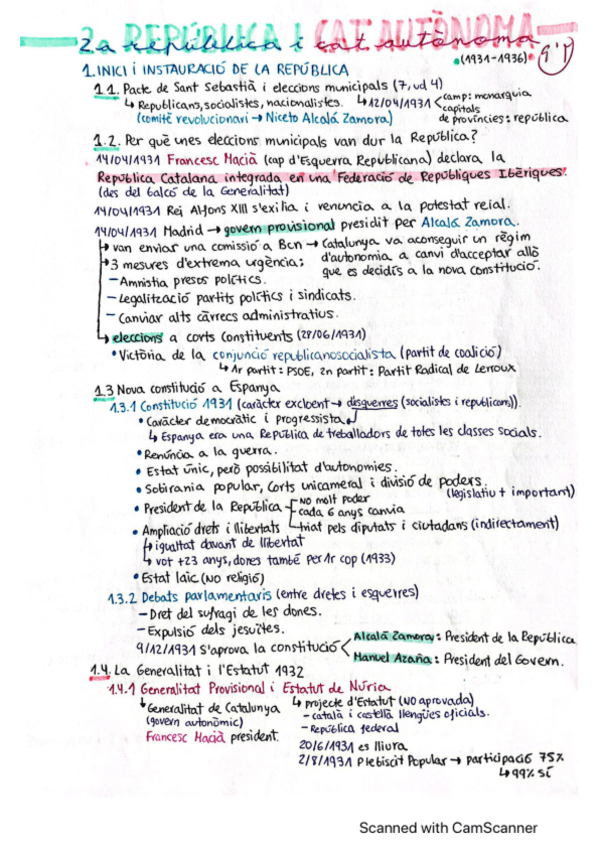 2a REPÚBLICA I CAT AUTÒNOMA
2a república i cat autònoma
(1931-1936)
1. INICI i INSTAURACIÓ DE LA REPÚBLICA
1.1. Pacte de Sant Sebastià i eleccions municipals (7, ud 4)
↳ Republicans, socialistes, nacionalistes. ↳ 12/04/1931 < camp: monarquia
capitals de províncies: república
(comitè revolucionari → Niceto Alcalá Zamora)
1.2. Per què unes eleccions municipals van dur la República?
14/04/1931 Francesc Macià (cap d'Esquerra Republicana) declara la
República Catalana integrada en una Federació de Repúbliques Ibèriques.
(des del balcó de la Generalitat)
14/04/1931 Rei Alfons XIII s'exilia i renuncia a la potestat reial.
14/04/1931 Madrid → govern provisional presidit per Alcalá Zamora.
↳ van enviar una comissió a Bcn → Catalunya va aconseguir un règim
d'autonomia a canvi d'acceptar allò
que es decidís a la nova constitució.
→ 3 mesures d'extrema urgència:
- Amnistia presos polítics.
- Legalització partits polítics i sindicats.
- Canviar alts càrrecs administratius.
↳ eleccions a corts constituents (28/06/1931)
• Victòria de la conjunció republicanosocialista (partit de coalició)
↳ 1r partit: PSOE, 2n partit: Partit Radical de Lerroux
1.3 Nova constitució a Espanya
1.3.1 Constitució 1931 (caràcter excloent → d'esquerres (socialistes i republicans)).
• Caràcter democràtic i progressista
↳ Espanya era una República de treballadors de totes les classes socials.
• Renúncia a la guerra.
• Estat únic, però possibilitat d'autonomies.
• Sobirania popular, Corts unicameral i divisió de poders.
(legislatiu + important)
• President de la República - No molt poder
cada 6 anys canvia
triat pels diputats i ciutadans (indirectament)
• Ampliació drets i llibertats
↳ igualtat davant de llibertat
↳ vot +23 anys, dones també per 1r cop (1933)
• Estat laic (NO religió)
1.3.2 Debats parlamentaris (entre dretes i esquerres)
- Dret del sufragi de les dones.
- Expulsió dels jesuïtes.
9/12/1931 s'aprova la constitució < Alcalá Zamora: President de la República
Manuel Azaña: President del Govern.
1.4. La Generalitat i l'Estatut 1932
1.4.1 Generalitat Provisional i Estatut de Núria
↳ Generalitat de Catalunya
(govern autonòmic)
Francesc Macià president.
↳ projecte d'Estatut (NO aprovada)
- català i castellà llengües oficials.
- República federal
20/6/1931 es lliura
2/8/1931 Plebiscit Popular → participació 75%
↳ 99% SÍ
Scanned with CamScanner